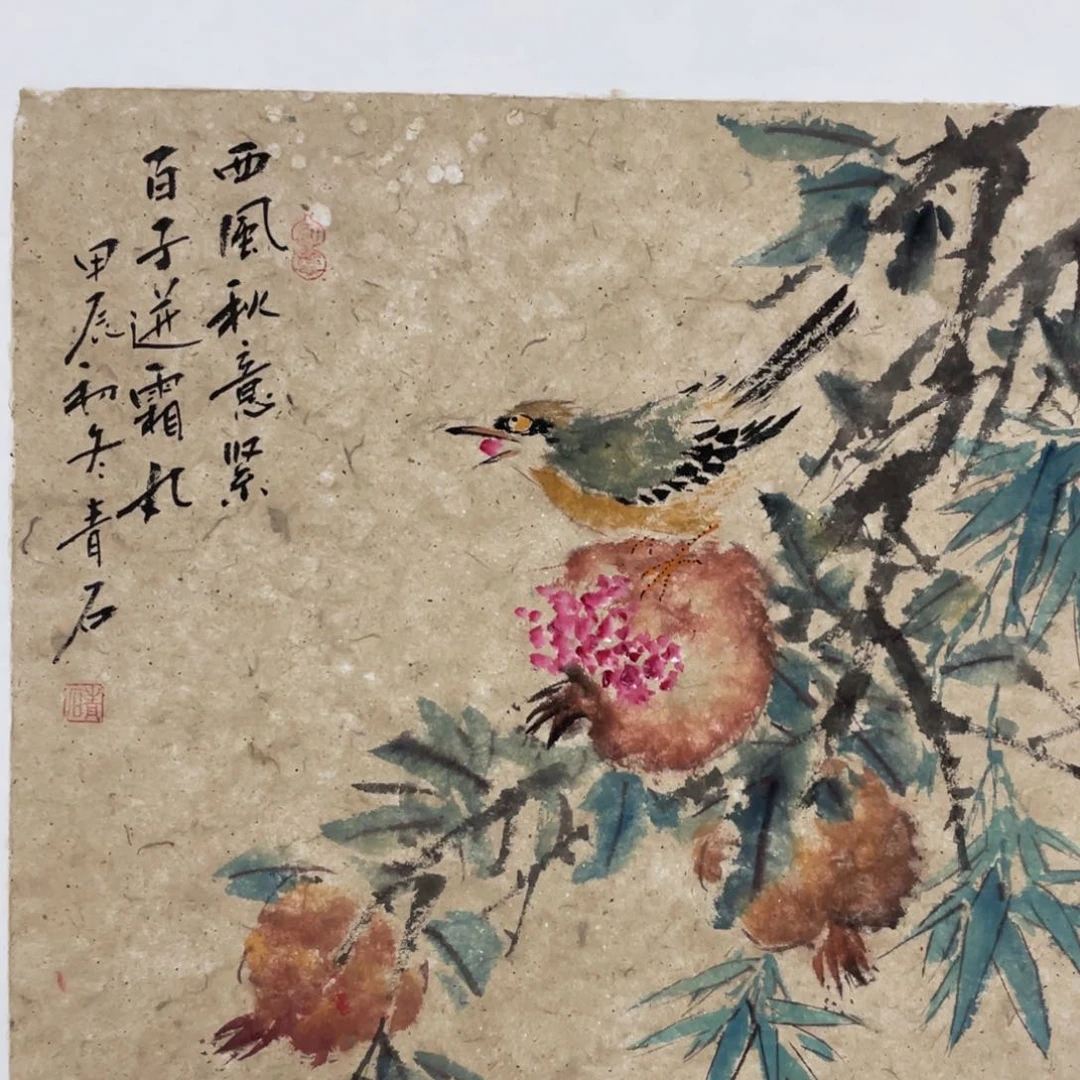 西風秋意緊
百子迸霜紅
甲辰初冬青石
青石